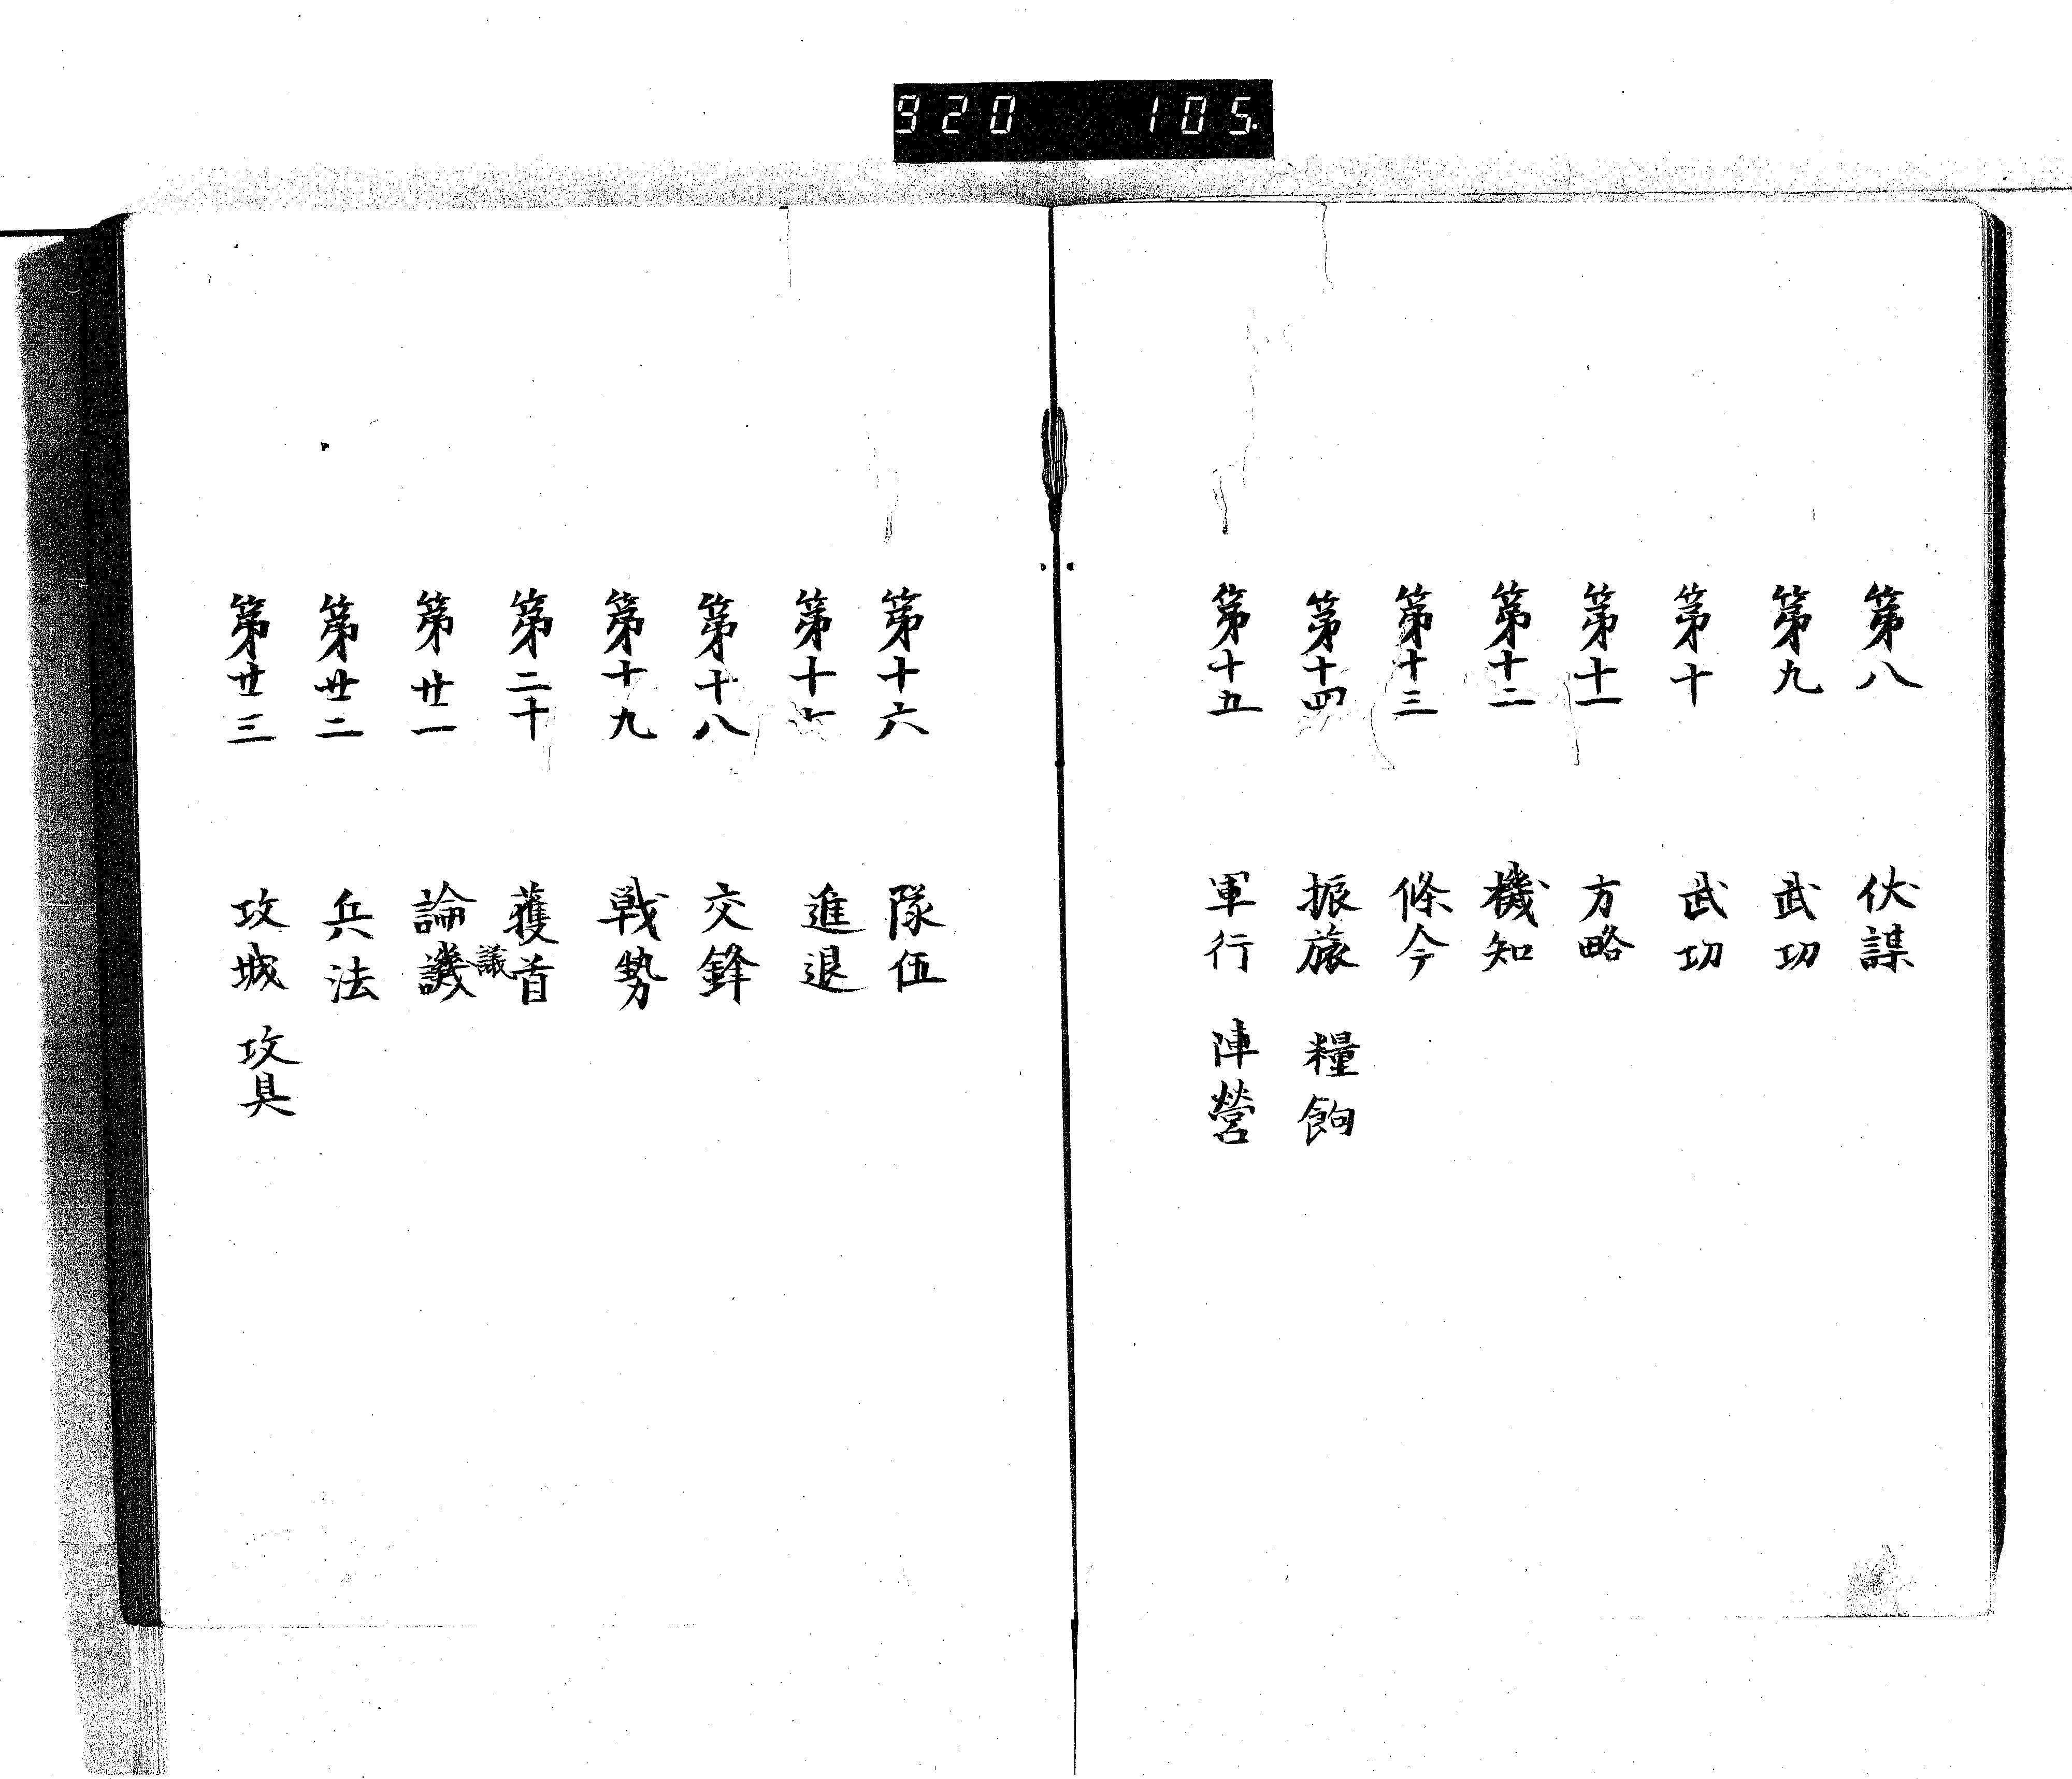 920 105
第八 伏謀
第九 武功
第十 武功
第十一 方略
第十二 機知
第十三 條令
第十四 振旅 糧餉
第十五 軍行 陣營
第十六 隊伍
第十七 進退
第十八 交鋒
第十九 戦勢
第二十 獲首
議
第廿一 論譏
第廿二 兵法
第廿三 攻城 攻具